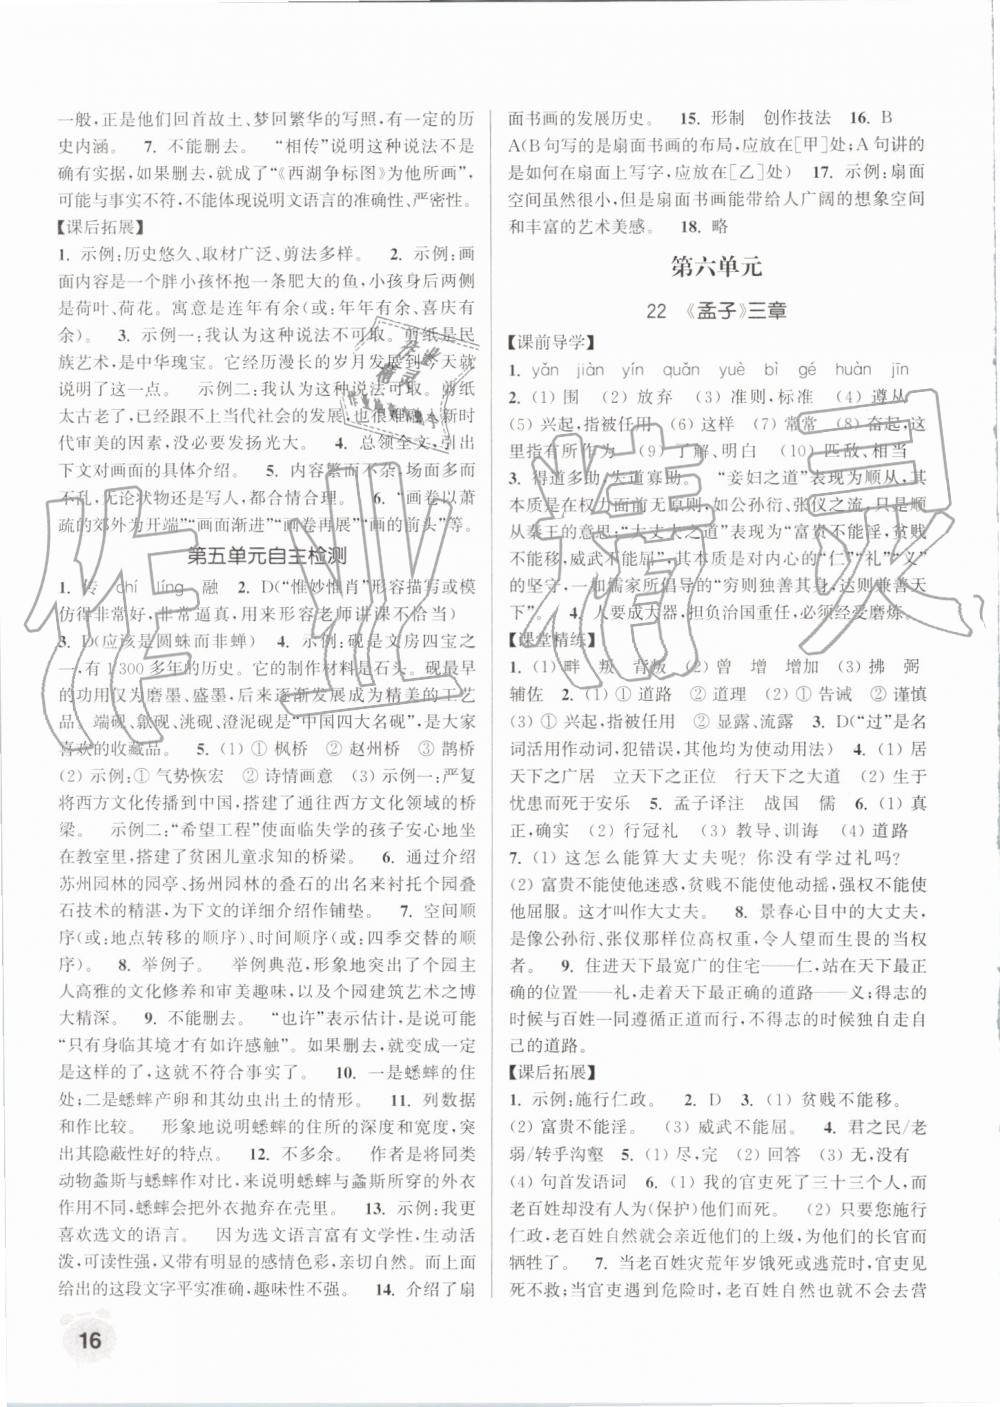 一般,正是他们回首故土、梦回繁华的写照,有一定的历
史内涵。 7. 不能删去。 “相传”说明这种说法不是
确有实据,如果删去,就成了“《西湖争标图》为他所画”,
可能与事实不符,不能体现说明文语言的准确性、严密性。
【课后拓展】
1. 示例:历史悠久、取材广泛、剪法多样。 2. 示例:画
面内容是一个胖小孩怀抱一条肥大的鱼,小孩身后两侧
是荷叶、荷花。寓意是连年有余(或:年年有余、喜庆有
余)。 3. 示例一:我认为这种说法不可取。剪纸是民
族艺术,是中华瑰宝。它经历漫长的岁月发展到今天就
说明了这一点。 示例二:我认为这种说法可取。剪纸
太古老了,已经跟不上当代社会的发展,也很难融入新时
代审美的因素,没必要发扬光大。 4. 总领全文,引出
下文对画面的具体介绍。 5. 内容繁而不杂,场面多而
不乱,无论状物还是写人,都合情合理。 6. “画卷以萧
疏的郊外为开端”“画面渐进”“画卷再展”“画的前头”等。
第五单元自主检测
1. 传 chí líng 融 2. D(“惟妙惟肖”形容描写或模
仿得非常好,非常逼真,用来形容老师讲课不恰当)
3. D(应该是圆蛛而非蝉) 4. 示例:砚是文房四宝之
一,有着 1 300 多年的历史。它的制作材料是石头。砚最早
的功用仅为磨墨、盛墨,后来逐渐发展成为精美的工艺
品。端砚、歙砚、洮砚、澄泥砚是“中国四大名砚”,是大家
喜欢的收藏品。 5. (1) ① 枫桥 ② 赵州桥 ③ 鹊桥
(2) 示例:① 气势恢宏 ② 诗情画意 (3) 示例一:严复
将西方文化传播到中国,搭建了通往西方文化领域的桥
梁。 示例二:“希望工程”使面临失学的孩子安心地坐
在教室里,搭建了贫困儿童求知的桥梁。 6. 通过介绍
苏州园林的园亭、扬州园林的叠石的出名来衬托个园叠
石技术的精湛,为下文的详细介绍作铺垫。 7. 空间顺
序(或:地点转移的顺序)、时间顺序(或:四季交替的顺
序)。 8. 举例子。 举例典范,形象地突出了个园主
人高雅的文化修养和审美趣味,以及个园建筑艺术之博
大精深。 9. 不能删去。 “也许”表示估计,是说可能
“只有身临其境才有如许感触”。如果删去,就变成一定
是这样的了,就不符合事实了。 10. 一是蟋蟀的住
处;二是蟋蟀产卵和其幼虫出土的情形。 11. 列数据
和作比较。 形象地说明蟋蟀的住所的深度和宽度,突
出其隐蔽性好的特点。 12. 不多余。 作者是将同类
动物螽斯与蟋蟀作对比,将蟋蟀与螽斯所穿的外衣
作用不同,蟋蟀会把外衣抛弃在壳里。 13. 示例,我更
喜欢选文的语言。 因为选文语言富有文学性,生动活
泼,可读性强,又带有明显的感情色彩,有亲和力。而上面
给出的这段文字平实准确,趣味性不强。 14. 介绍了扇
面书画的发展历史。 15. 形制 创作技法 16. B
A(B句写的是扇面书画的布局,应放在[甲]处;A句讲的
是如何在扇面上写字,应放在[乙]处) 17. 示例:扇面
空间虽然很小,但是扇面书画能带给人广阔的想象空间
和丰富的艺术美感。 18. 略
第六单元
22 《孟子》三章
【课前导学】
1. yǎn jiàn yín quǎn yuè bì gé huàn jīn
2. (1) 围 (2) 放弃 (3) 准则,标准 (4) 遵从
(5) 兴起,指被任用 (6) 这样 (7) 常常 (8) 奋起,这
里指有所作为 (9) 了解、明白 (10) 匹敌、相当
3. 得道多助,失道寡助。 “妾妇之道”表现为顺从,其
本质是在权力面前无原则,如公孙衍、张仪之流,只是顺
从秦王的意思;“大丈夫之道”表现为“富贵不能淫,贫贱
不能移,威武不能屈”,其本质是内心的“仁”“礼”“义”
的坚守,一如儒家所倡导的“穷则独善其身,达则兼善天
下”。 4. 人要成大器,担负治国重任,必须经受磨炼。
【课堂精练】
1. (1) 畔 叛 背叛 (2) 曾 增 增加 (3) 拂 弼
辅佐 2. (1) ① 道路 ② 道理 (2) ① 告诫 ② 谨慎
(3) ① 兴起,指被任用 ② 显露、流露 3. D(“过”是名
词活用作动词,犯错误,其他均为使动用法) 4. (1) 居
天下之广居 立天下之正位 行天下之大道 (2) 生于
忧患而死于安乐 5. 孟子译注 战国 儒 6. (1) 真
正,确实 (2) 行冠礼 (3) 教导、训诲 (4) 道路
7. (1) 这怎么能算大丈夫呢?你没有学过礼吗?
(2) 富贵不能使他迷惑,贫贱不能使他动摇,强权不能使
他屈服。这才叫作大丈夫。 8. 景春心目中的大丈夫,
像公孙衍、张仪那样位高权重,令人望而生畏的当权
者。 9. 住进天下最宽广的住宅——仁,站在天下最正
确的位置——礼,走着天下最正确的道路——义;得志的
时候与百姓一同遵循正道而行,不得志的时候独自走自
己的道路。
【课后拓展】
1. 示例:施行仁政。 2. D 3. (1) 贫贱不能移。
(2) 富贵不能淫。 (3) 威武不能屈。 4. 君之民/老
弱/转乎沟壑 5. (1) 尽,完 (2) 回答 (3) 没有
(4) 句首发语词 6. (1) 我的官吏死了三十三个人,而
老百姓却没有为(保护)他们而死的。 (2) 只要您施行
仁政,老百姓自然就会亲近他们的上级,为他们的官长而
牺牲了。 7. 当老百姓灾荒年岁饿死时,官吏对此漠然
处之不救;当官吏遇到危险时,老百姓自然也不会去营
16
作业精灵